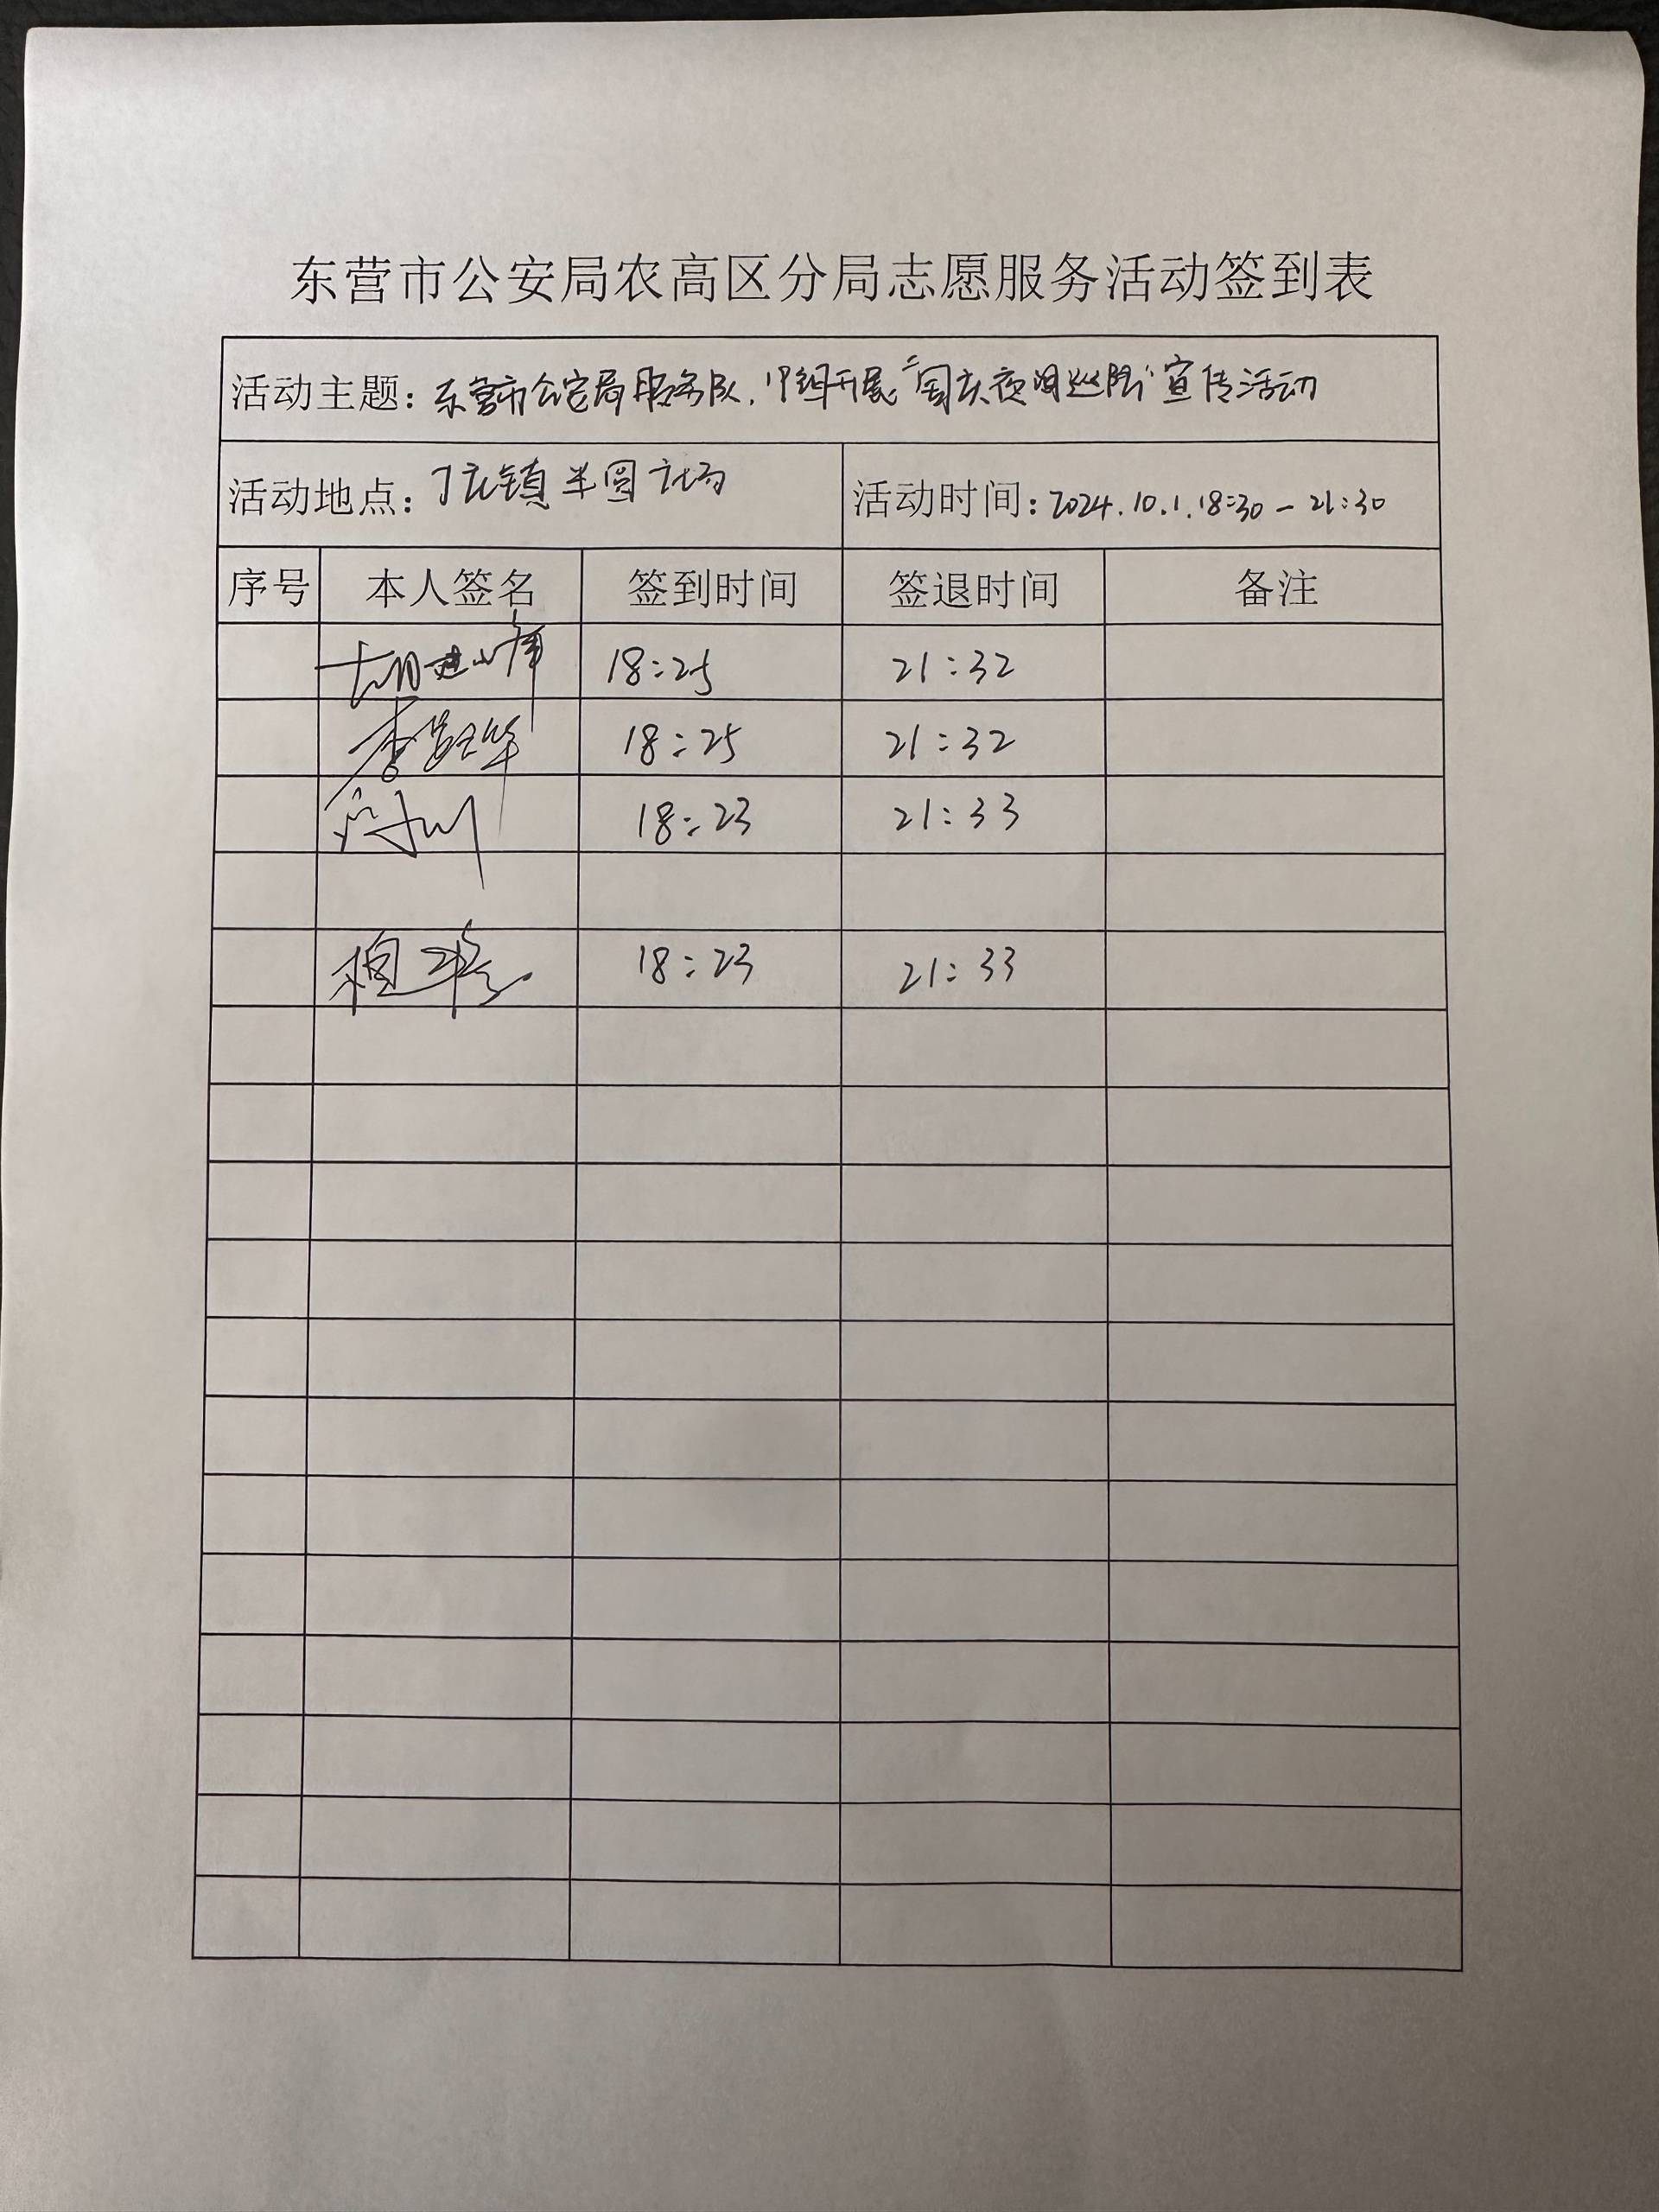 东营市公安局农高区分局志愿服务活动签到表
活动主题：东营市公安局服务队，开展"国庆夜间巡防"宣传活动
活动地点：丁庄镇半圆广场 活动时间：2024.10.1.18:30-21:30
序号 本人签名 签到时间 签退时间 备注
胡建 18:25 21:32
李 华 18:25 21:32
18:23 21:33
18:23 21:33